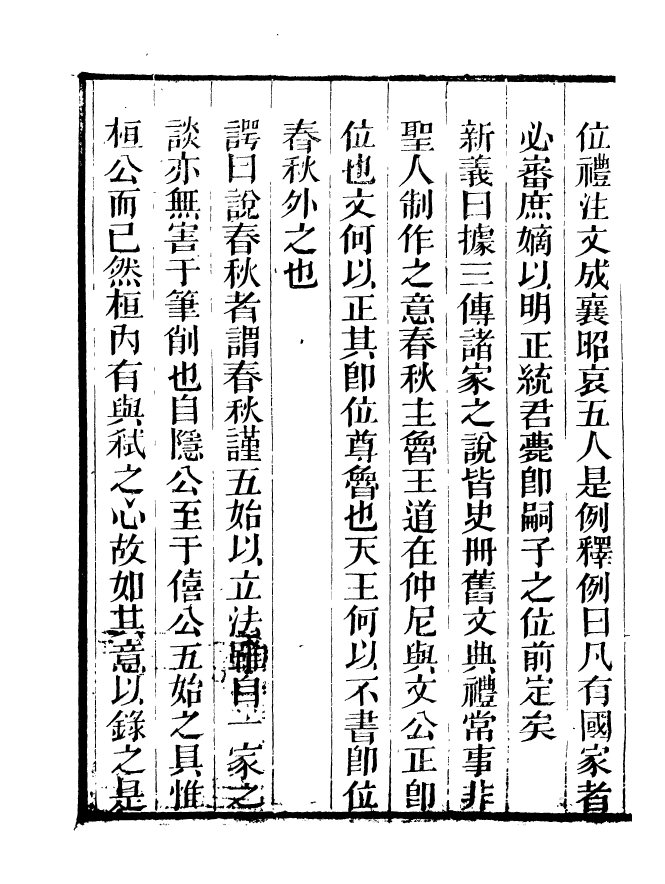 位禮注文成襄昭哀五人是例釋例曰凡有國家者
必審庶嫡以明正統君薨卽嗣子之位前定矣
新義曰據三傳諸家之說皆史冊舊文典禮常事非
聖人制作之意春秋主魯王道在仲尼與文公正卽
位也文何以正其卽位尊魯也天王何以不書卽位
春秋外之也
諤曰說春秋者謂春秋謹五始以立法雖自一家之
談亦無害于筆削也自隱公至于僖公五始之具惟
桓公而已然桓內有與弑之心故如其意以錄之是